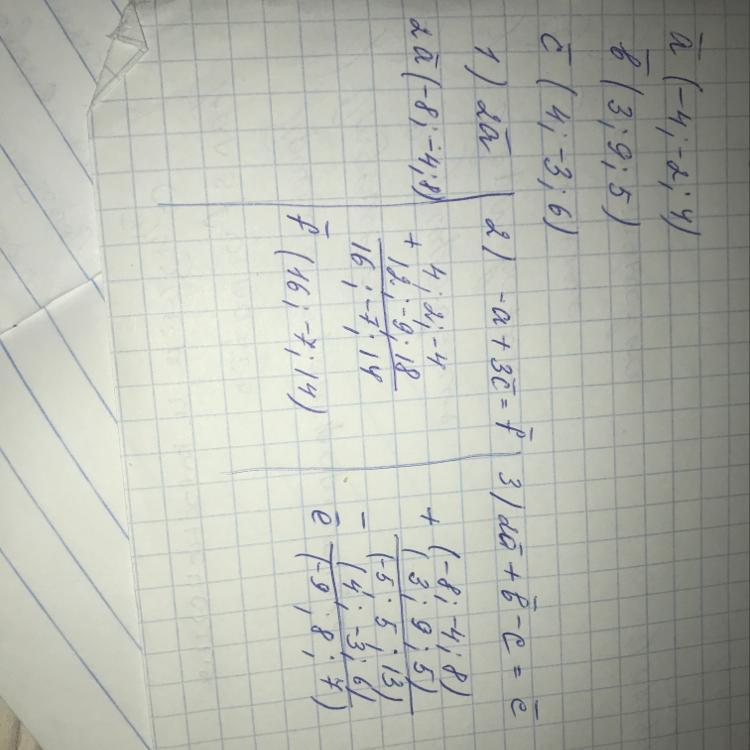 ā (-4; -2; 4)
b̄ (3; 9; 5)
c̄ (4; -3; 6)
1) 2ā
2ā (-8; -4; 8)
2) -a + 3c̄ = f̄
4; 2; -4
+ 12; -9; 18
16; -7; 14
f̄ (16; -7; 14)
3) 2ā + b̄ - c = ē
(-8; -4; 8)
+ (3; 9; 5)
(-5; 5; 13)
- (4; -3; 6)
ē (-9; 8; 7)